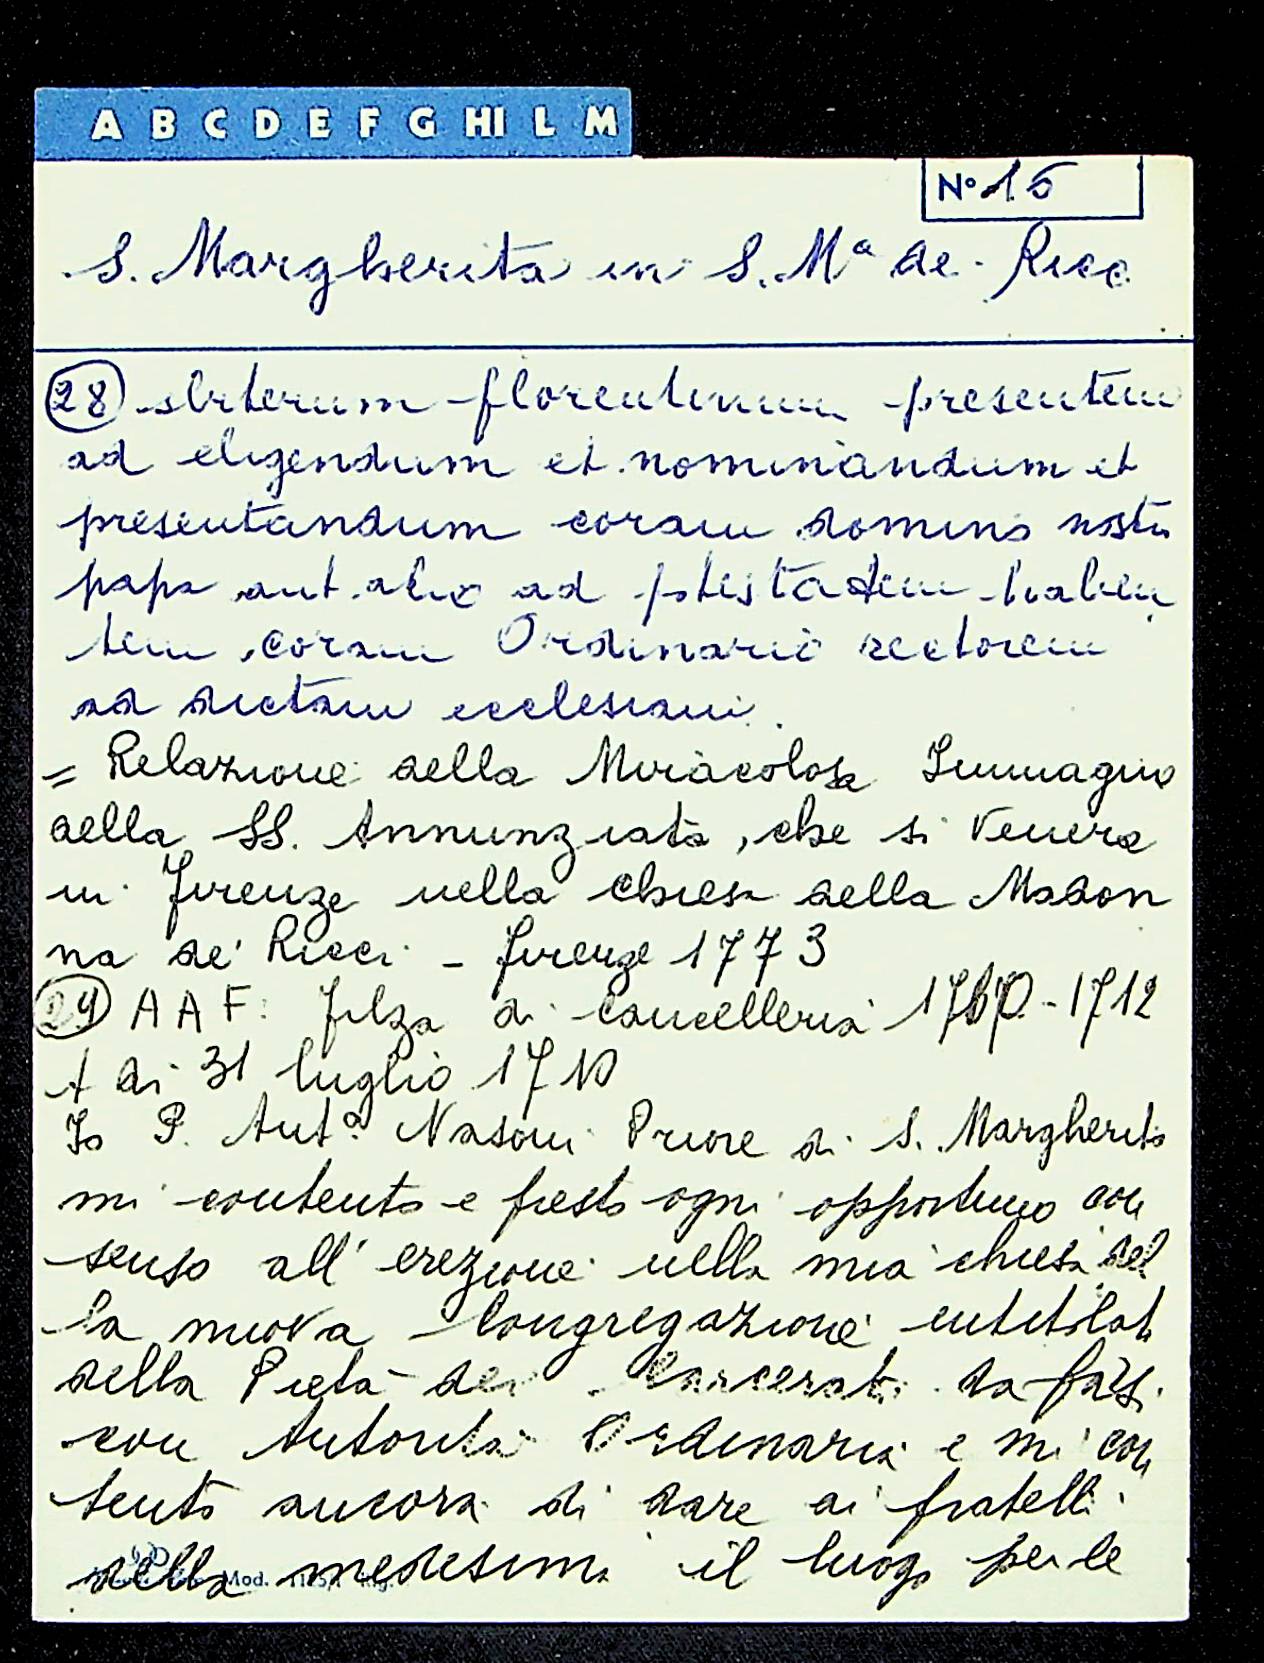 A B C D E F G HI L M
N° 15
S. Margherita in S. Mª de Ricc
28 florentinum presentem
ad eligendum et nominandum et
presentandum coram domino nostro
papa aut alio ad potestatem haben
tem, coram Ordinario rectorem
ad dictam ecclesiam.
= Relazione della Miracolosa Immagine
della SS. Annunziata, che si venera
in Firenze nella chiesa della Madon
na de' Ricci - Firenze 1773
29 A A F: Filza di cancelleria - 1712
A di 31 luglio 1710
Io P. Antº Nasoni Priore di S. Margherita
mi contento e presto ogni opportuno con
senso all' erezione nella mia chiesa del
la nuova Congregazione intitolata
della Pietà dei Carcerati da farsi
con Autorità Ordinaria e mi con
tento ancora di dare ai fratelli
della medesima il luogo per le
Mod.